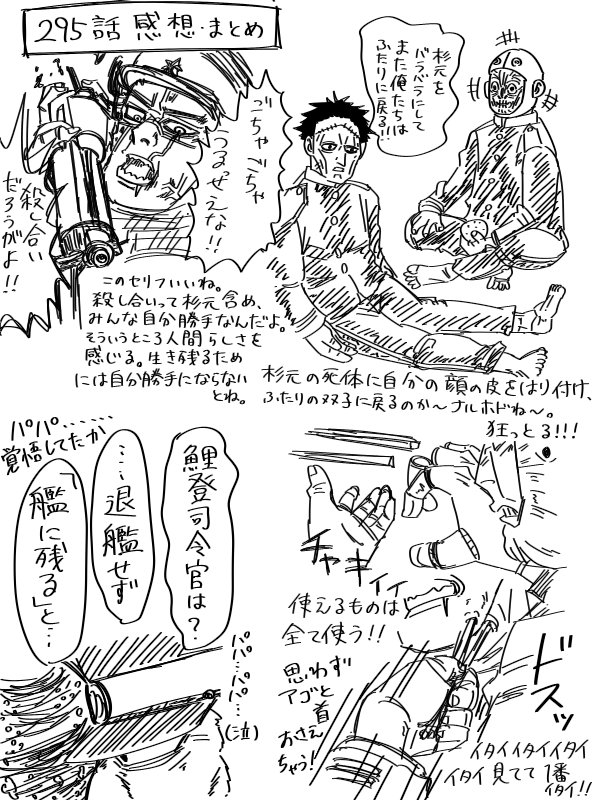 295話 感想・まとめ
杉元を
バラバラにして
また俺たちは
ふたりに戻る!!
ごちゃごちゃ
うるせえな!!
殺し合い
だろうがよ!!
このセリフいいね。
殺し合いって杉元含め、
みんな自分勝手なんだよ。
そういうところ人間らしさを
感じる。生き残るため
には自分勝手にならない
とね。
杉元の死体に自分の顔の皮をはり付け、
ふたりの双子に戻るのか〜ナルホドね〜。
狂っとる!!!
パパ……
覚悟してたか
鯉登司令官は?
…退艦せず
「艦に残る」と…
パパ…パパ…
(泣)
チャキィィ
使えるものは
全て使う!!
思わず
アゴと
首
おさえ
ちゃう!
ドスッ
イタイイタイイタイ
イタイ見てて1番
イタイ!!